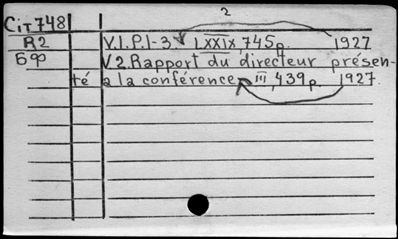 2
Cit 748
R2 V.I.P.I-3 LXXIX, 745p. 1927
БФ V2.Rapport du directeur présen-
té a la conférence III, 439p. 1927.